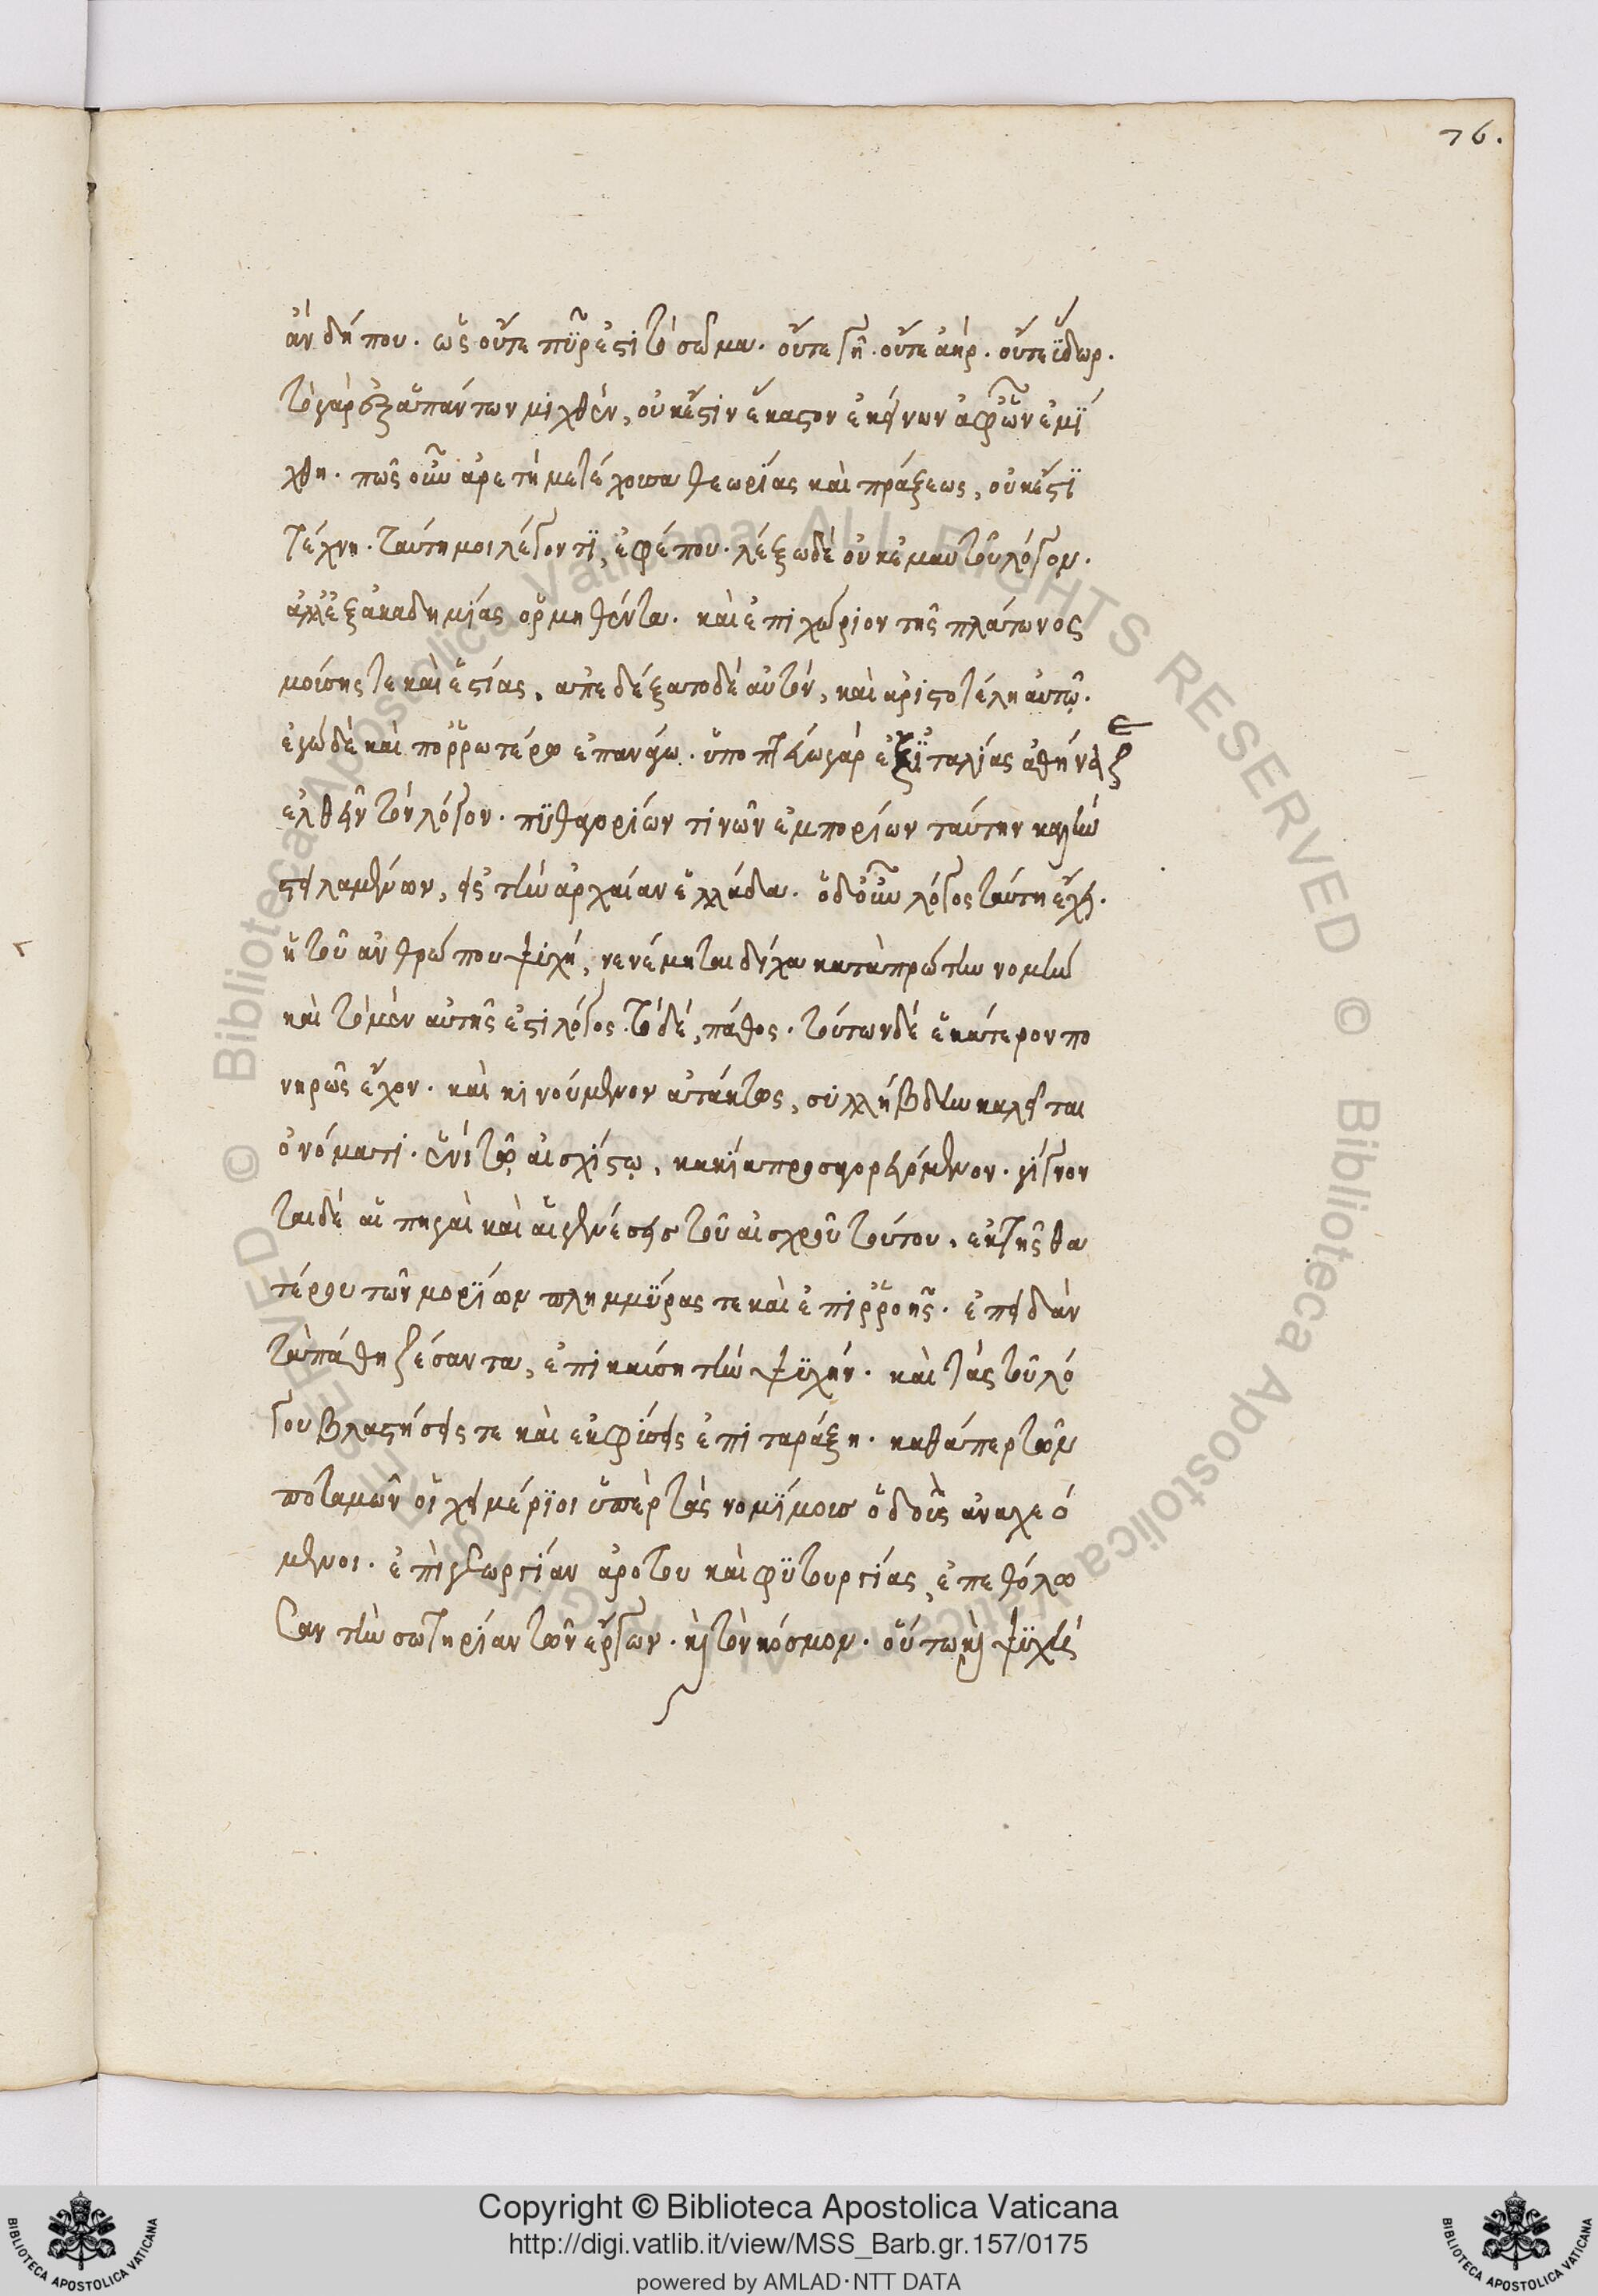 76.
ἂν δήπου. ὡς οὔτε πῦρ ἐστὶ τὸ σῶμα. οὔτε γῆ. οὔτε ἀήρ. οὔτε ὕδωρ.
τὸ γὰρ ἐξ ἁπάντων μιχθὲν, οὐκ ἔστιν ἕκαστον ἐκείνων ἀφ' ὧν ἐμί
χθη. πῶς οὖν ἀρετὴ μετέχουσα θεωρίας καὶ πράξεως, οὐκ ἔστι
τέχνη. ταύτη μοι λέγοντι, ἐφέπου. λέξω δὲ οὐκ ἐμαυτοῦ λόγον.
ἀλλ' ἐξ ἀκαδημίας ὁρμηθέντα. καὶ ἐπιχώριον τῆς πλάτωνος
μούσης τε καὶ ἑστίας. ἀπεδέξατο δὲ αὐτὸν, καὶ ἀριστοτέλη αὐτῷ.
ἐγὼ δὲ καὶ πορρωτέρω ἐπανάγω. ὑποπτεύω γὰρ ἐξ ἰταλίας ἀθήναζε
ἐλθεῖν τὸν λόγον. πυθαγορίων τινῶν ἐμποριῶν ταύτην καλὴν
στειλαμένων, εἰς τὴν ἀρχαίαν ἑλλάδα. ὁ δ' οὖν λόγος ταύτη εἶχε.
ἡ τοῦ ἀνθρώπου ψυχὴ, νενέμηται δίχα κατὰ πρώτην νομὴν
καὶ τὸ μὲν αὐτῆς ἐστὶ λόγος. τὸ δὲ, πάθος. τούτων δὲ ἑκάτερον πο
νηρῶς ἔχον. καὶ κινούμενον ἀτάκτως, συλλήβδην καλεῖται
ὀνόματι. ἑνὶ τῷ αἰσχίστῳ, κακία προσαγορευόμενον. γίγνον
ται δὲ αἱ πηγαὶ καὶ αἱ γενέσεις τοῦ αἰσχροῦ τούτου. ἐκ τῆς θα
τέρου τῶν μορίων πλημμύρας τε καὶ ἐπιρροῆς. ἐπειδὰν
τὰ πάθη ζέσαντα, ἐπικλύση τὴν ψυχὴν. καὶ τὰς τοῦ λό
γου βλαστήσεις τε καὶ ἐκφύσεις ἐπιταράξη. καθάπερ τῶν
ποταμῶν οἱ χειμέριοι ὑπὲρ τὰς νομίμους ὁδοὺς ἀναχεό
μενοι. ἐπὶ γεωργίαν ἀρότου καὶ φυτουργίας, ἐπεθόλω
σαν τὴν σωτηρίαν τῶν ἔργων. καὶ τὸν κόσμον. οὕτω καὶ ψυχὴ
Copyright © Biblioteca Apostolica Vaticana
http://digi.vatlib.it/view/MSS_Barb.gr.157/0175
powered by AMLAD·NTT DATA